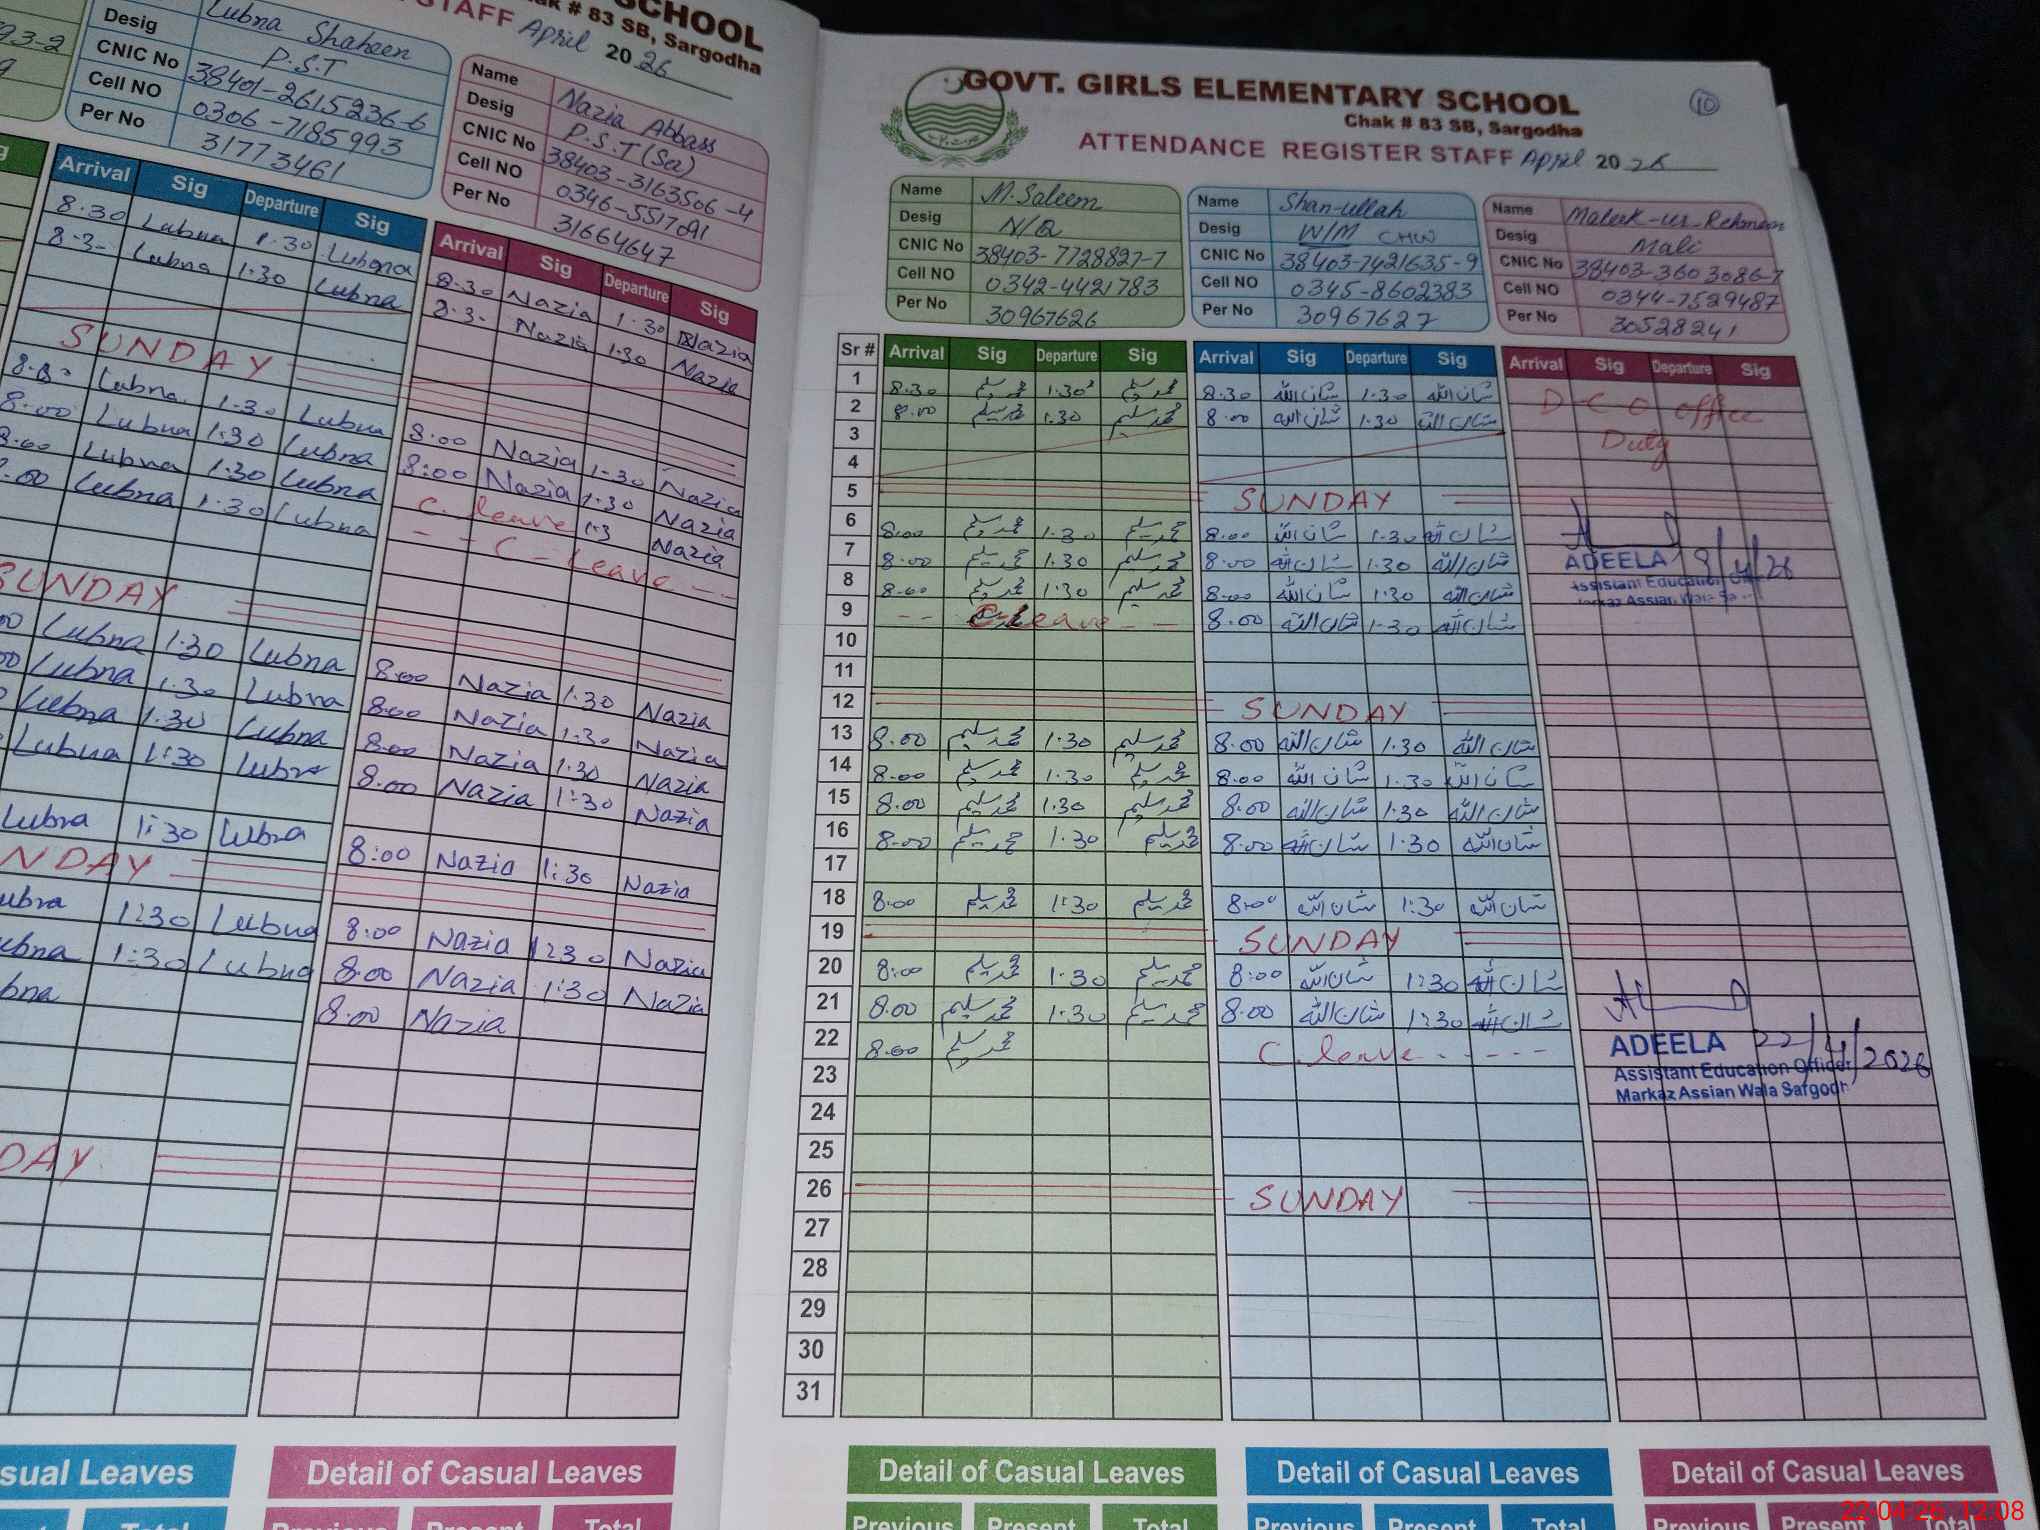 SCHOOL
Chak # 83 SB, Sargodha
STAFF April 2026
Desig Lubna Shaheen
CNIC No P.S.T
Cell NO 38401-2615236-6
Per No 0306-7185993
31773461
Arrival Sig Departure Sig
8.30 Lubna 1.30 Lubna
8.3- Lubna 1.30 Lubna
SUNDAY
Lubna 1.30 Lubna
8.00 Lubna 1.30 Lubna
8.00 Lubna 1.30 Lubna
.00 Lubna 1.30 Lubna
SUNDAY
Lubna 1.30 Lubna
Lubna 1.30 Lubna
Lubna 1.30 Lubna
Lubna 1:30 Lubna
Lubna 1:30 Lubna
NDAY
ubna 1:30 Lubna
ubna 1:30 Lubna
bna
DAY
sual Leaves
Total
Name Nazia Abbass
Desig P.S.T (Sci)
CNIC No 38403-3163506-4
Cell NO 0346-5517091
Per No 31664647
Arrival Sig Departure Sig
8.30 Nazia 1.30 Nazia
8.3- Nazia 1.30 Nazia
8.00 Nazia 1.30 Nazia
8:00 Nazia 1.30 Nazia
C. leave 1.3 Nazia
- - C - Leave - -
8.00 Nazia 1.30 Nazia
8.00 Nazia 1.30 Nazia
8.00 Nazia 1.30 Nazia
8.00 Nazia 1:30 Nazia
8:00 Nazia 1:30 Nazia
8:00 Nazia 1:30 Nazia
8.00 Nazia 1:30 Nazia
8.00 Nazia
Detail of Casual Leaves
Previous Present Total
GOVT. GIRLS ELEMENTARY SCHOOL
10
Chak # 83 SB, Sargodha
ATTENDANCE REGISTER STAFF April 2026
Name M. Saleem
Desig N/Q
CNIC No 38403-7728827-7
Cell NO 0342-4421783
Per No 30967626
Name Shan-ullah
Desig W/M CHW
CNIC No 38403-7421635-9
Cell NO 0345-8602383
Per No 30967627
Name Malek-ur-Rehman
Desig Mali
CNIC No 38403-3603086-7
Cell NO 0344-7529487
Per No 30528241
Sr # Arrival Sig Departure Sig Arrival Sig Departure Sig Arrival Sig Departure Sig
1 8.30 محمد سلیم 1.30 محمد سلیم 8.30 شان اللہ 1.30 شان اللہ D C O office
2 8.00 محمد سلیم 1.30 محمد سلیم 8.00 شان اللہ 1.30 شان اللہ Duty
3
4
5 SUNDAY
6 8.00 محمد سلیم 1.30 محمد سلیم 8.00 شان اللہ 1.30 شان اللہ
7 8.00 محمد سلیم 1.30 محمد سلیم 8.00 شان اللہ 1.30 شان اللہ ADEELA 9/4/26
8 8.00 محمد سلیم 1.30 محمد سلیم 8.00 شان اللہ 1.30 شان اللہ Assistant Education
9 - - C. Leave - - 8.00 شان اللہ 1.30 شان اللہ
10
11
12 SUNDAY
13 8.00 محمد سلیم 1.30 محمد سلیم 8.00 شان اللہ 1.30 شان اللہ
14 8.00 محمد سلیم 1.30 محمد سلیم 8.00 شان اللہ 1.30 شان اللہ
15 8.00 محمد سلیم 1.30 محمد سلیم 8.00 شان اللہ 1.30 شان اللہ
16 8.00 محمد سلیم 1.30 محمد سلیم 8.00 شان اللہ 1.30 شان اللہ
17
18 8.00 محمد سلیم 1:30 محمد سلیم 8:00 شان اللہ 1:30 شان اللہ
19 SUNDAY
20 8:00 محمد سلیم 1:30 محمد سلیم 8:00 شان اللہ 1:30 شان اللہ
21 8.00 محمد سلیم 1:30 محمد سلیم 8.00 شان اللہ 1:30 شان اللہ
22 8.00 محمد سلیم C. leave - - - - - ADEELA 22/4/2026
Assistant Education Officer
23 Markaz Assian Wala Sargodh
24
25
26 SUNDAY
27
28
29
30
31
Detail of Casual Leaves Detail of Casual Leaves Detail of Casual Leaves
Previous Present Total Previous Present Total Previous Present Total
22-04-26 12:08